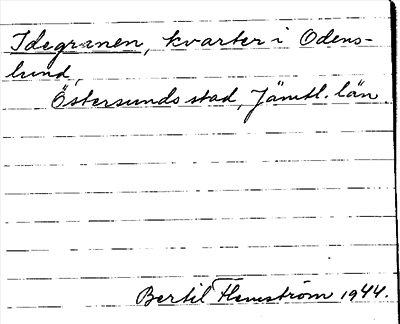 Idegranen, kvarter i Odens-
lund,
Östersunds stad, Jämtl. län
Bertil Flemström 1944.